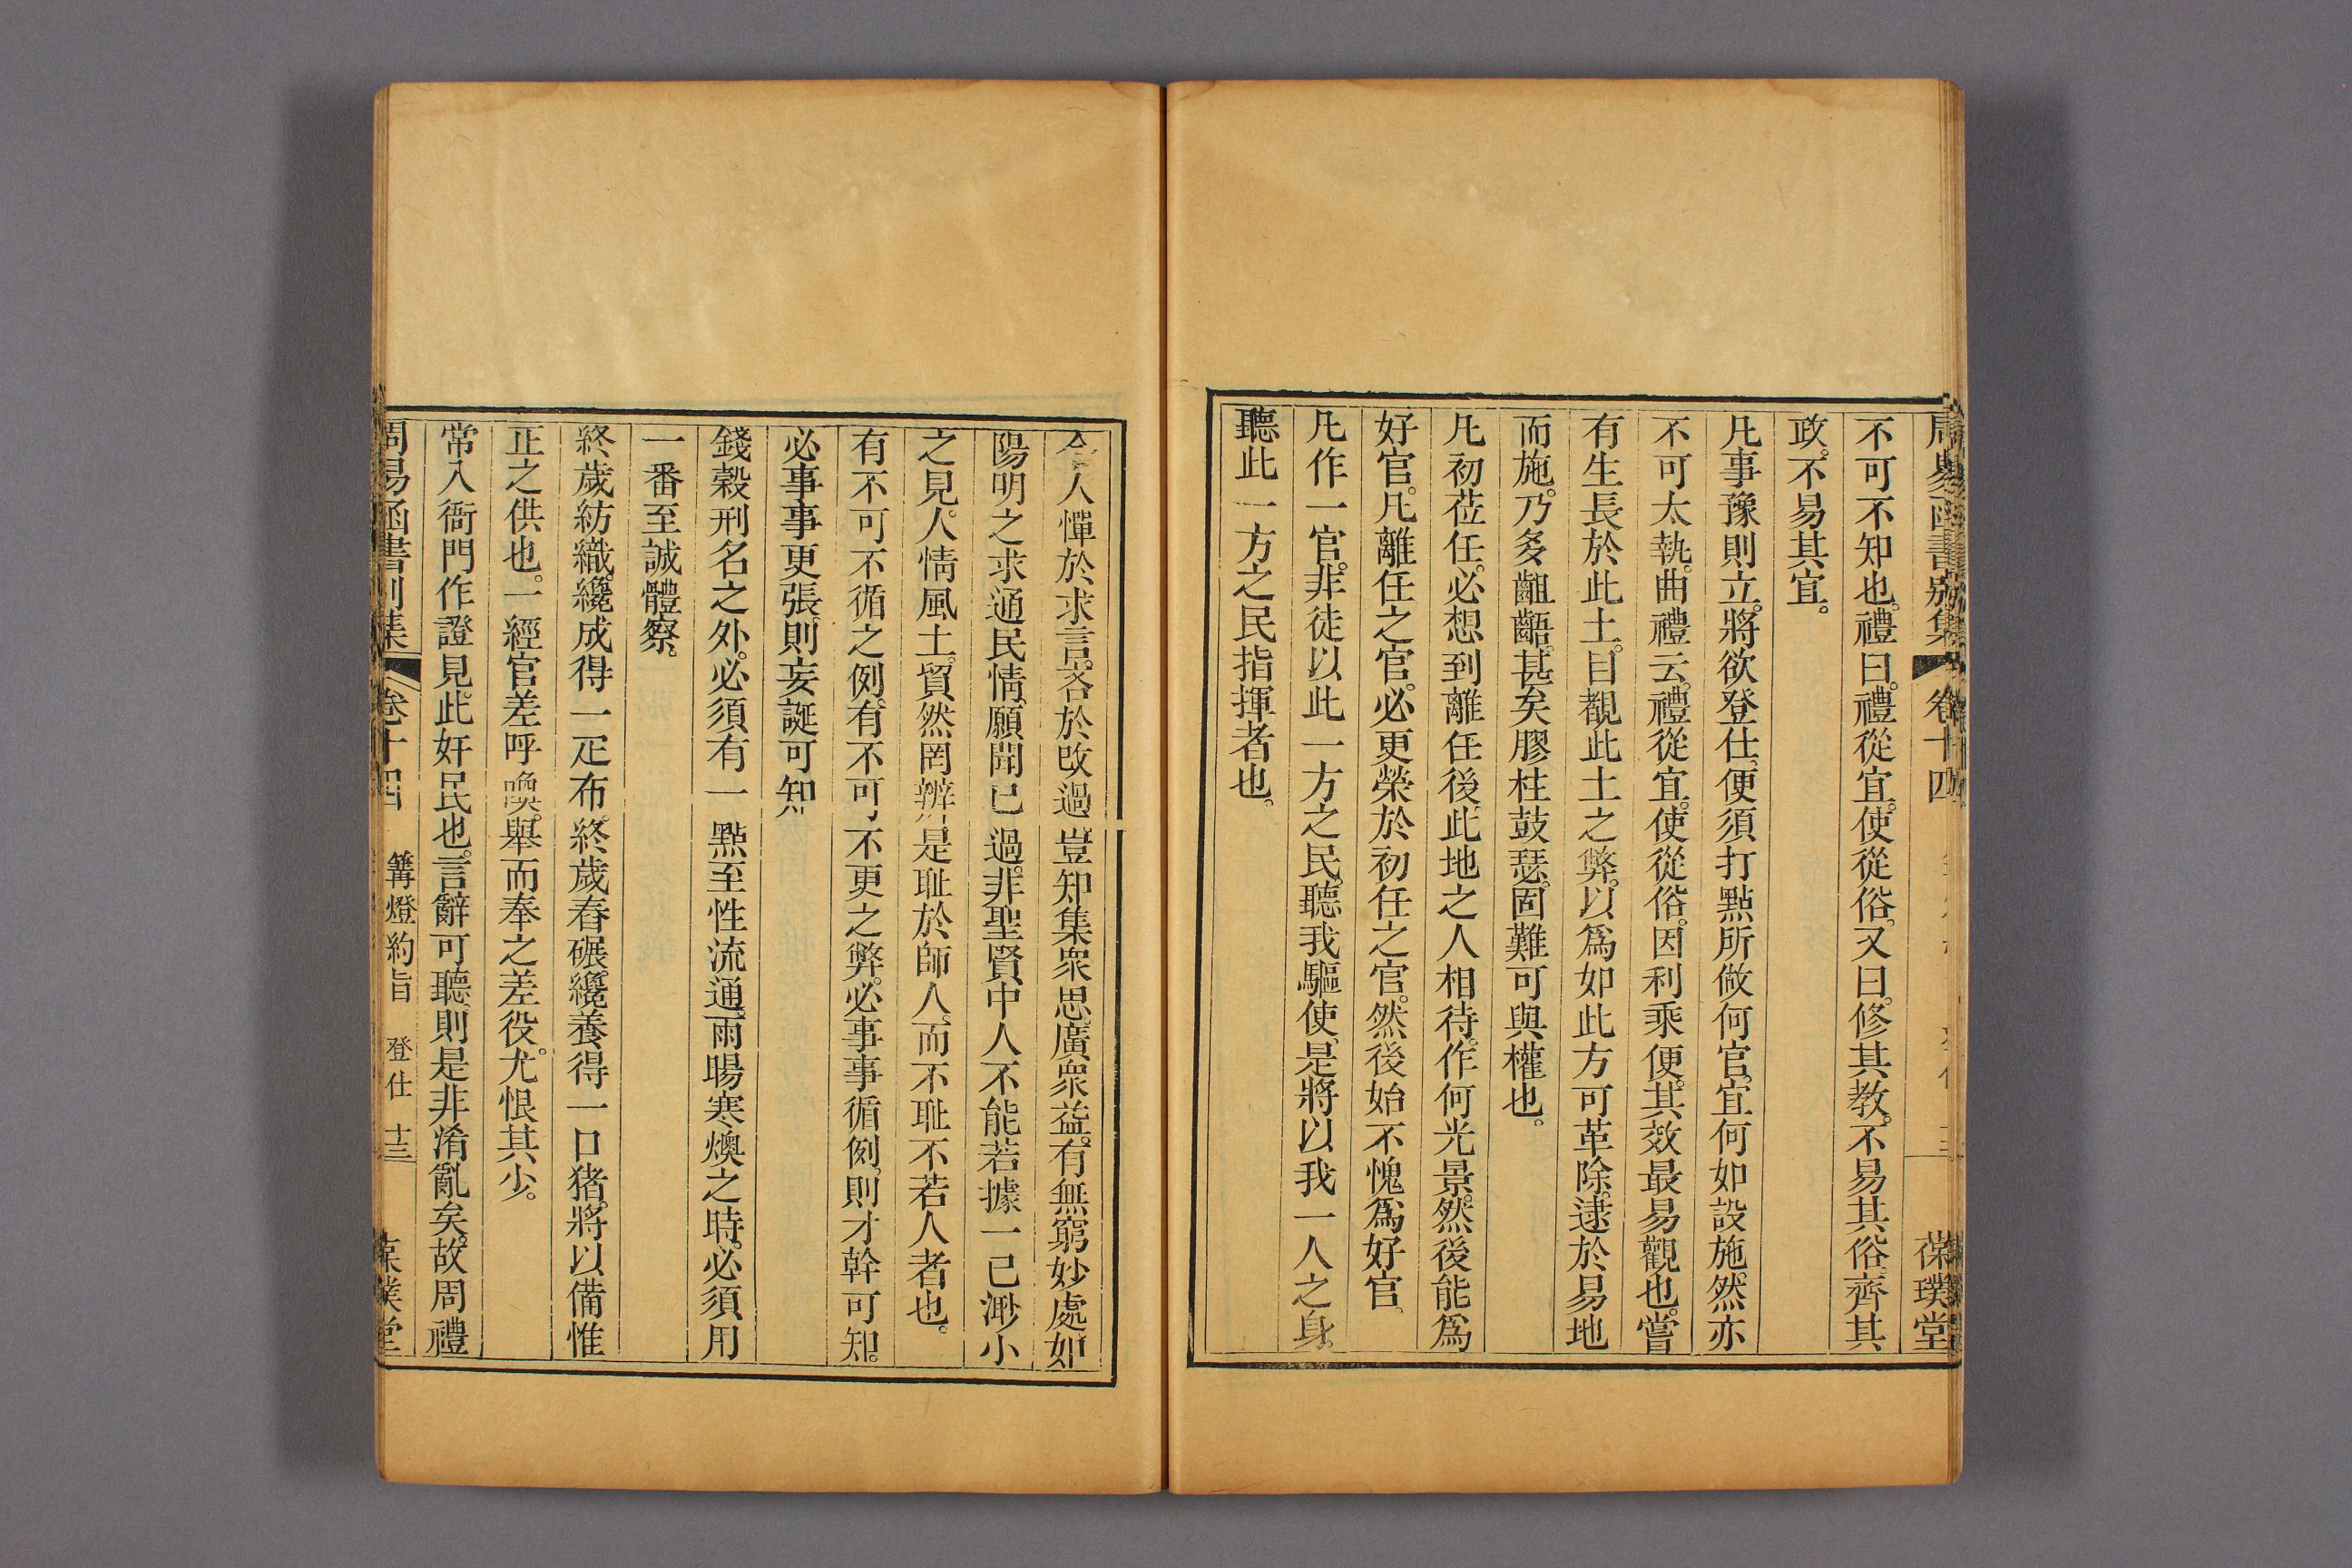 周易函書別集 卷十四 葆璞堂
不可不知也。禮曰。禮從宜。使從俗。又曰。修其教。不易其俗。齊其
政。不易其宜。
凡事豫則立。將欲登仕。便須打點所做何官。宜何如設施。然亦
不可太執。曲禮云。禮從宜。使從俗。因利乘便。其效最易觀也。嘗
有生長於此土。目覩此土之弊。以爲如此方可革除。逮於易地
而施。乃多齟齬。甚矣膠柱鼓瑟。固難可與權也。
凡初莅任。必想到離任後。此地之人相待。作何光景。然後能爲
好官。凡離任之官。必更榮於初任之官。然後始不愧爲好官。
凡作一官。非徒以此一方之民。聽我驅使。是將以我一人之身。
聽此一方之民指揮者也。
今人憚於求言。吝於改過。豈知集衆思。廣衆益。有無窮妙處。如
陽明之求通民情。願聞已過。非聖賢中人不能。若據一己渺小
之見。人情風土。貿然罔辨。是耻於師人。而不耻不若人者也。
有不可不循之例。有不可不更之弊。必事事循例。則才幹可知。
必事事更張。則妄誕可知
錢穀刑名之外。必須有一點至性流通。雨暘寒燠之時。必須用
一番至誠體察。
終歲紡織。纔成得一疋布。終歲舂碾。纔養得一口猪。將以備惟
正之供也。一經官差呼喚。舉而奉之差役。尤恨其少。
常入衙門作證見。此奸民也。言辭可聽。則是非淆亂矣。故周禮
周易函書別集 卷十四 篝燈約旨 登仕 十三 葆璞堂